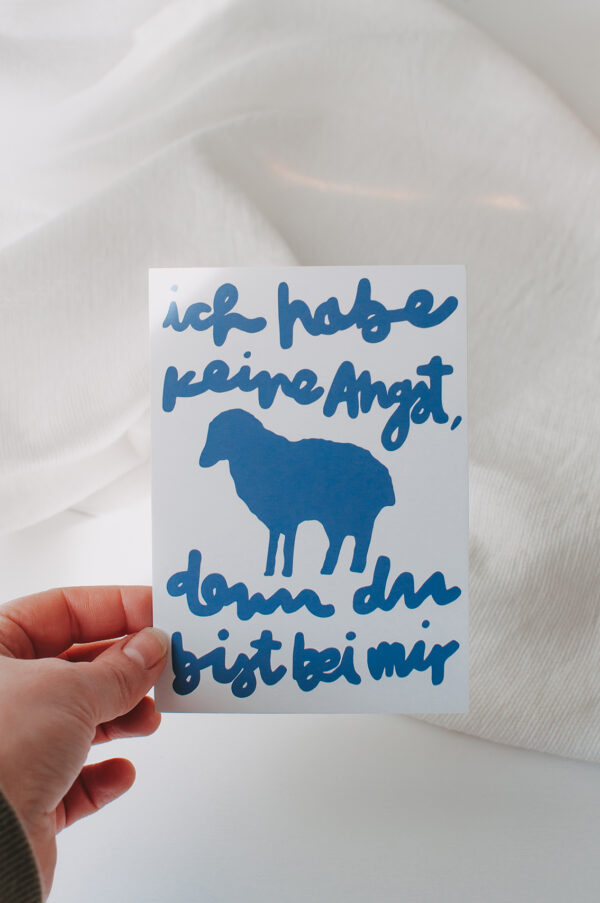 ich habe
keine Angst,
denn du
bist bei mir